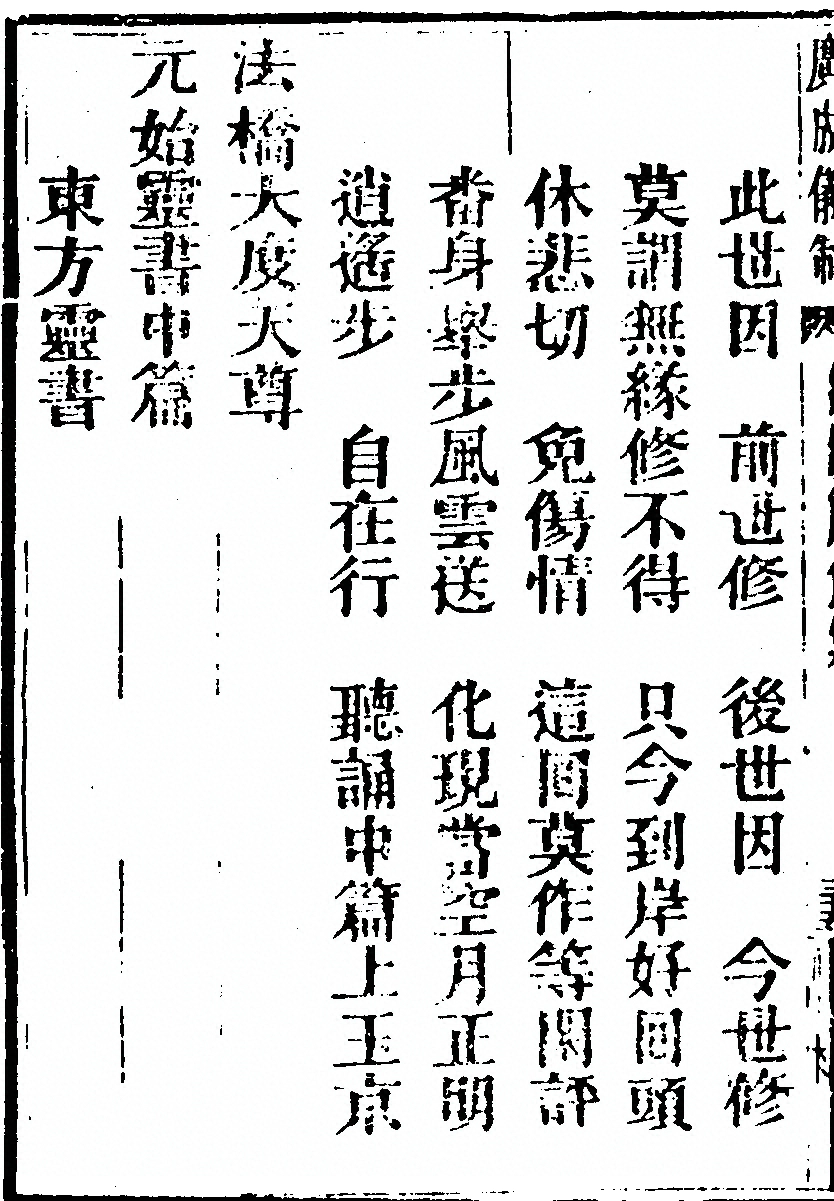 廣成儀制
此世因　前世修　後世因　今世修
莫謂無緣修不得　只今到岸好回頭
休悲切　免傷情　這回莫作等閒評
番身舉步風雲送　化現當空月正明
逍遙步　自在行　聽誦中篇上玉京
法橋大度天尊
元始靈書中篇
東方靈書